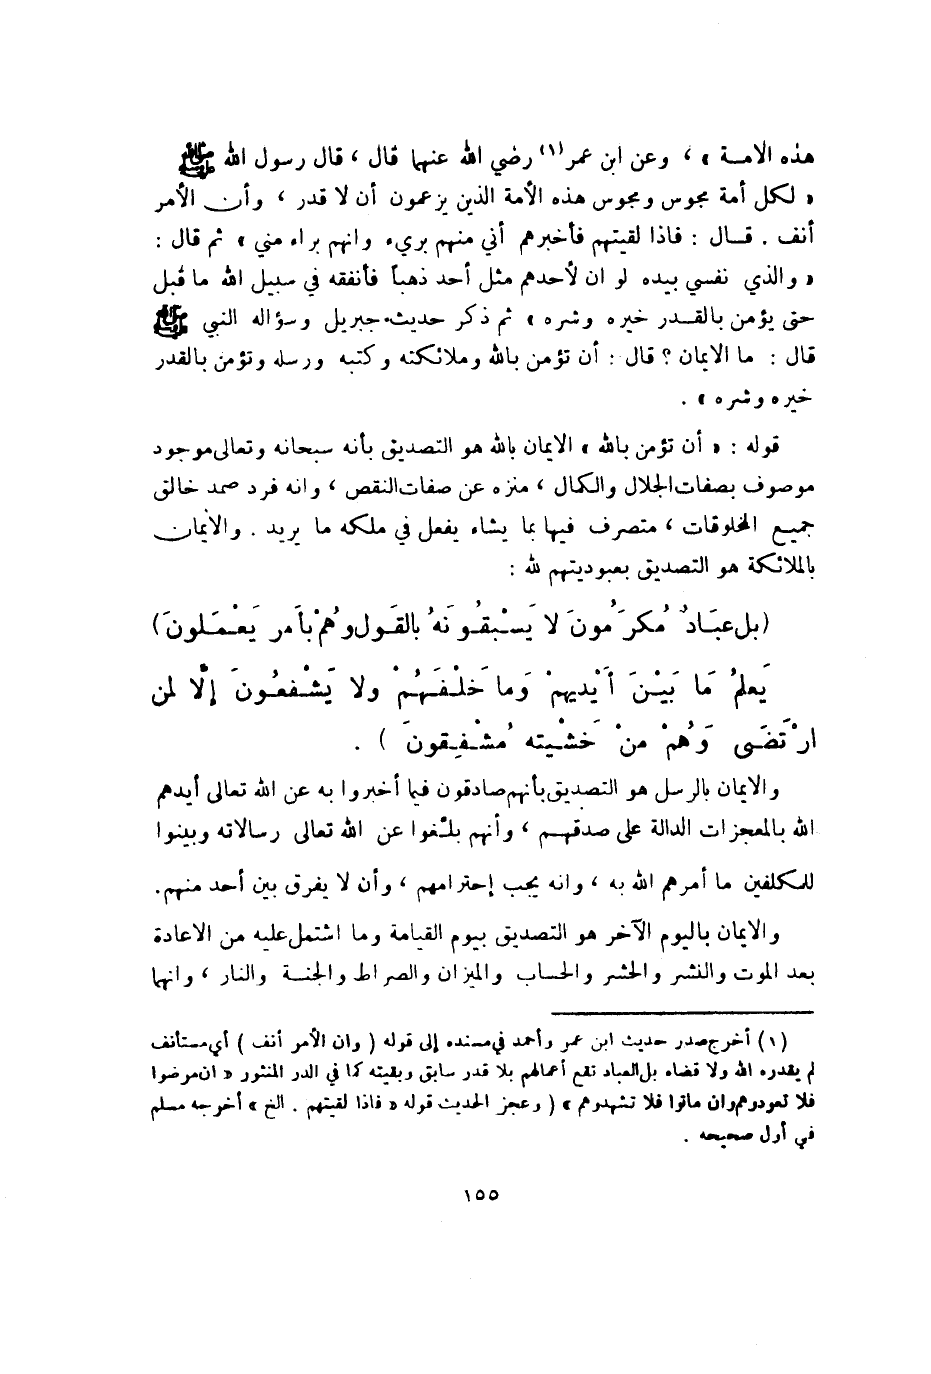 هذه الامـة » ، وعن ابن عمر(١) رضي الله عنهما قال ، قال رسول الله ﷺ
« لكل أمة مجوس ومجوس هذه الأمة الذين يزعمون أن لا قدر ، وأن الأمر
أنف . قـال : فاذا لقيتهم فأخبرهم أني منهم بريء وانهم براء مني » ثم قال :
« والذي نفسي بيده لو ان لأحدهم مثل أحد ذهباً فأنفقه في سبيل الله ما قبل
حتى يؤمن بالقـدر خيره وشره » ثم ذكر حديث جبريل وسؤاله النبي ﷺ
قال : ما الايمان ؟ قال : أن تؤمن بالله وملائكته وكتبه ورسله وتؤمن بالقدر
خيره وشره » .
قوله : « أن تؤمن بالله » الايمان بالله هو التصديق بأنه سبحانه وتعالى موجود
موصوف بصفات الجلال والكمال ، منزه عن صفات النقص ، وانه فرد صمد خالق
جميع المخلوقات ، متصرف فيها بما يشاء يفعل في ملكه ما يريد . والايمان
بالملائكة هو التصديق بعبوديتهم لله :
(بل عبَادٌ مُكرَمُونَ لا يَسْبقُونَهُ بالقَول وهُمْ بأمر يَعْمَلونَ)
يَعلمُ مَا بَيْنَ أيْديهمْ وَما خَلْفَهُمْ ولا يَشْفعُونَ إلّا لمن
ارْتَضَى وَهُمْ منْ خَشْيته مُشْفِقونَ ) .
والايمان بالرسل هو التصديق بأنهم صادقون فيما أخبروا به عن الله تعالى أيدهم
الله بالمعجزات الدالة على صدقهم ، وأنهم بلّغوا عن الله تعالى رسالاته وبينوا
للمكلفين ما أمرهم الله به ، وانه يجب إحترامهم ، وأن لا يفرق بين أحد منهم.
والايمان باليوم الآخر هو التصديق بيوم القيامة وما اشتمل عليه من الاعادة
بعد الموت والنشر والحشر والحساب والميزان والصراط والجنـة والنار ، وانها
(١) أخرج صدر حديث ابن عمر وأحمد في مسنده إلى قوله ( وان الأمر أنف ) أي مستأنف
لم يقدره الله ولا قضاه بل العباد تقع أعمالهم بلا قدر سابق وبقيته كما في الدر المنثور « ان مرضوا
فلا تعودوهم وان ماتوا فلا تشهدوهم » ( وعجز الحديث قوله « فاذا لقيتهم . الخ » أخرجه مسلم
في أول صحيحه .
١٥٥